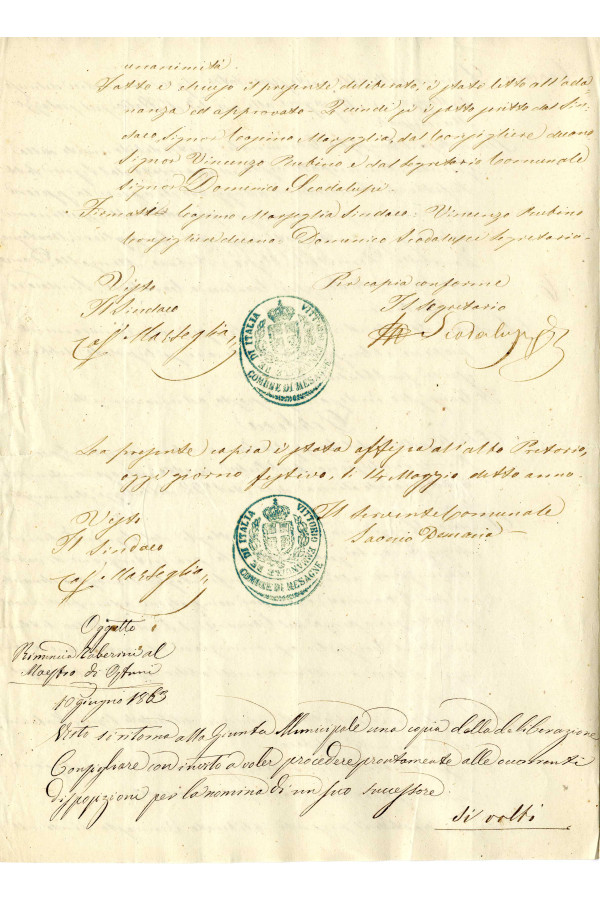 unanimità.
Fatto e chiuso il presente deliberato, è stato letto all'adu-
nanza ed approvato. E quindi si è sottoscritto dal Sin-
daco Signor Cosimo Masseglia, dal Consigliere decano
Signor Vincenzo Rubino e dal Segretario Comunale
Signor Domenico Scodalupi.
Firmati Cosimo Masseglia Sindaco: Vincenzo Rubino
Consigliere decano: Domenico Scodalupi Segretario
Visto
Il Sindaco
Masseglia
Per copia conforme
Il Segretario
Scodalupi
VITTORIO DI ITALIA
COMUNE DI MESAGNE
La presente copia è stata affissa all'albo Pretorio,
oggi giorno festivo, li 14 Maggio detto anno.
Visto
Il Sindaco
Masseglia
Il Servente Comunale
VITTORIO EMANUELE RE DI ITALIA
COMUNE DI MESAGNE
Oggetto
Rinuncia al
Maestro di Ostuni
10 giugno 1863
Visto si ritorna alla Giunta Municipale una copia della deliberazione
Consigliare con invito a voler procedere prontamente alle occorrenti
disposizioni per la nomina di un suo successore.
Si volti